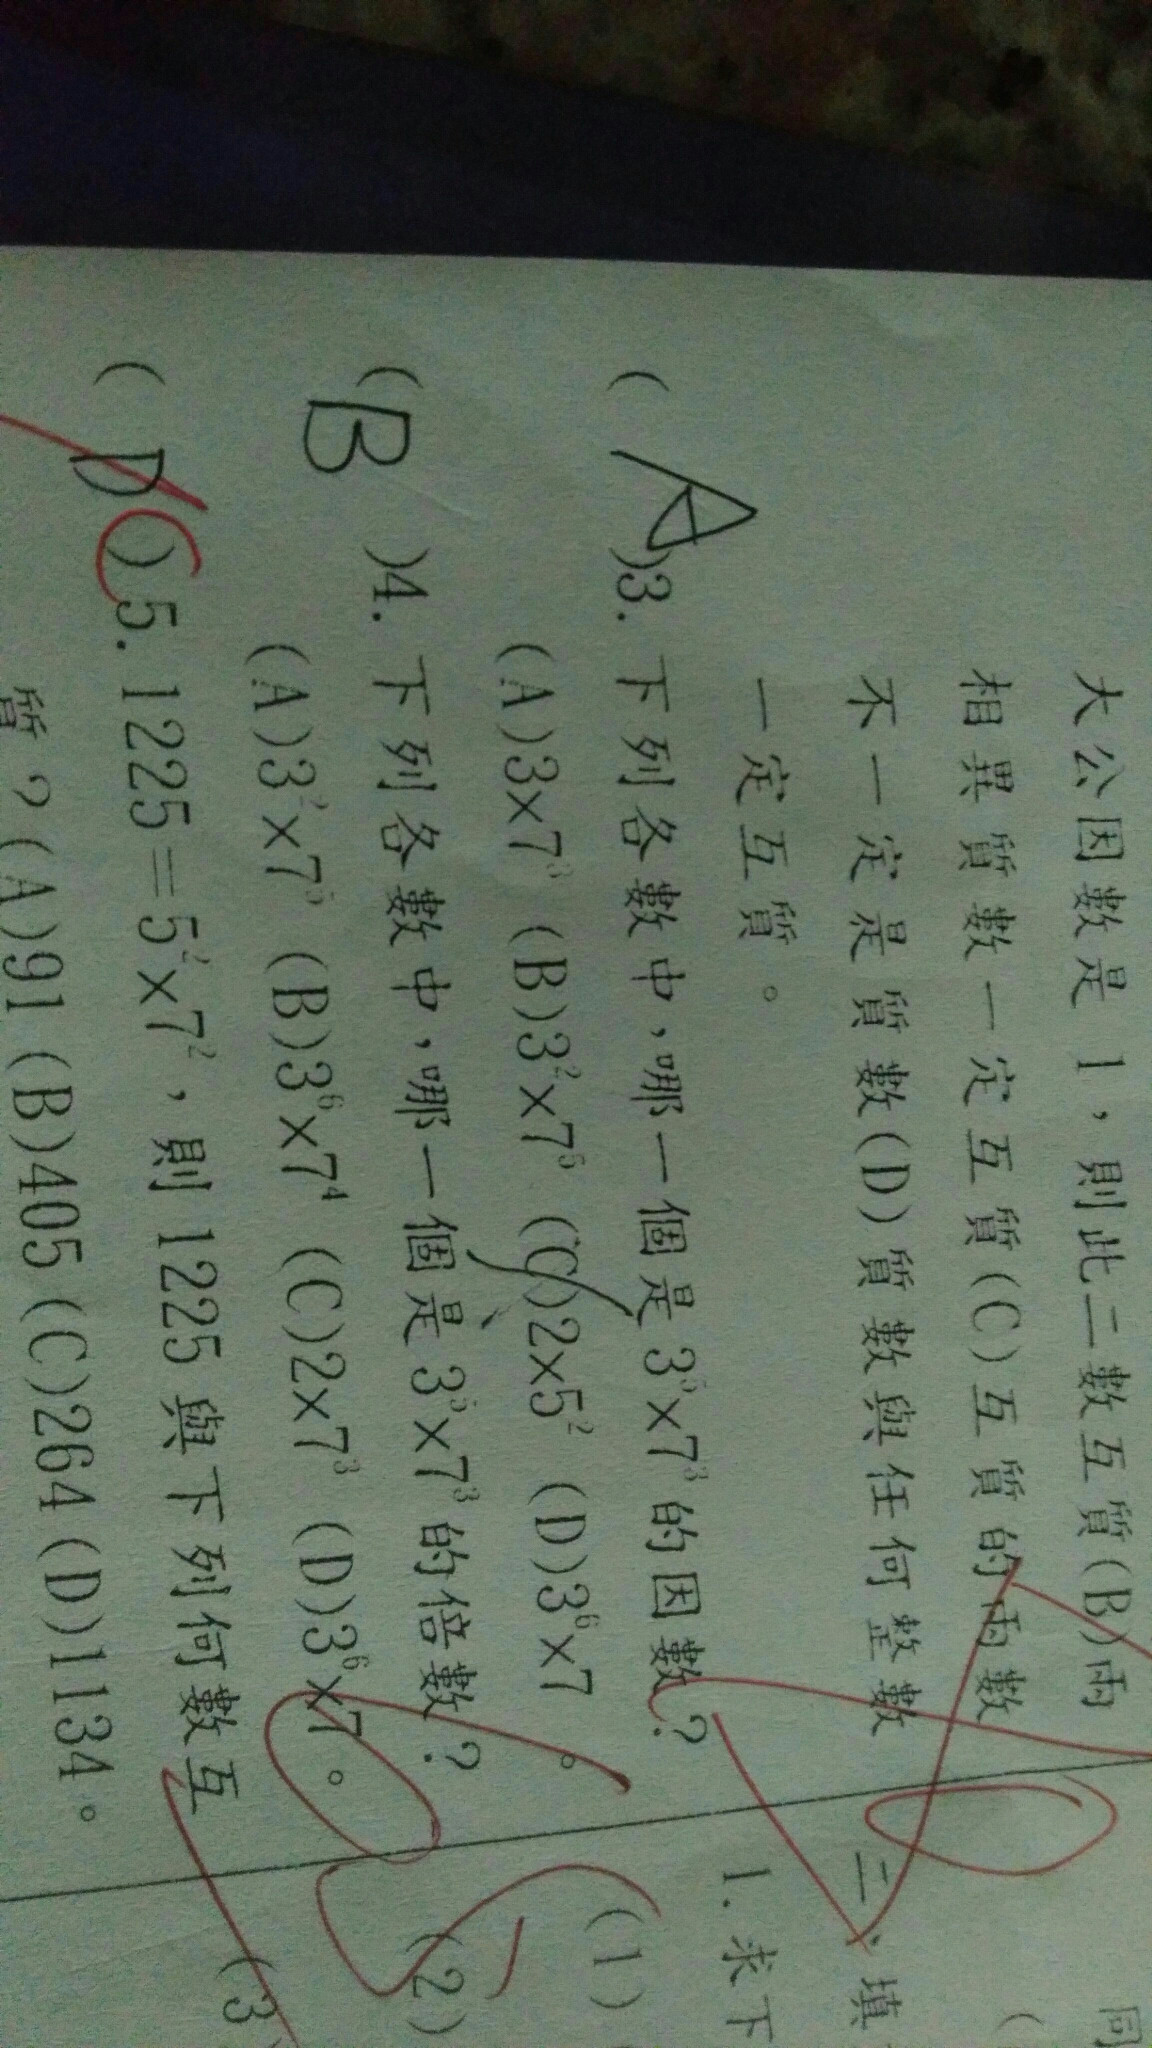 大公因數是 1，則此二數互質(B)兩
相異質數一定互質(C)互質的兩數
不一定是質數(D)質數與任何整數
一定互質。
( A )3. 下列各數中，哪一個是 3⁵×7³ 的因數？
(A)3×7³ (B)3²×7⁵ (C)2×5² (D)3⁶×7。
( B )4. 下列各數中，哪一個是 3⁵×7³ 的倍數？
(A)3²×7⁵ (B)3⁶×7⁴ (C)2×7³ (D)3⁶×7。
( D C )5. 1225=5²×7²，則 1225 與下列何數互
質？(A)91 (B)405 (C)264 (D)1134。
同
(
二、填
1. 求下
(1)
(2)
(3)